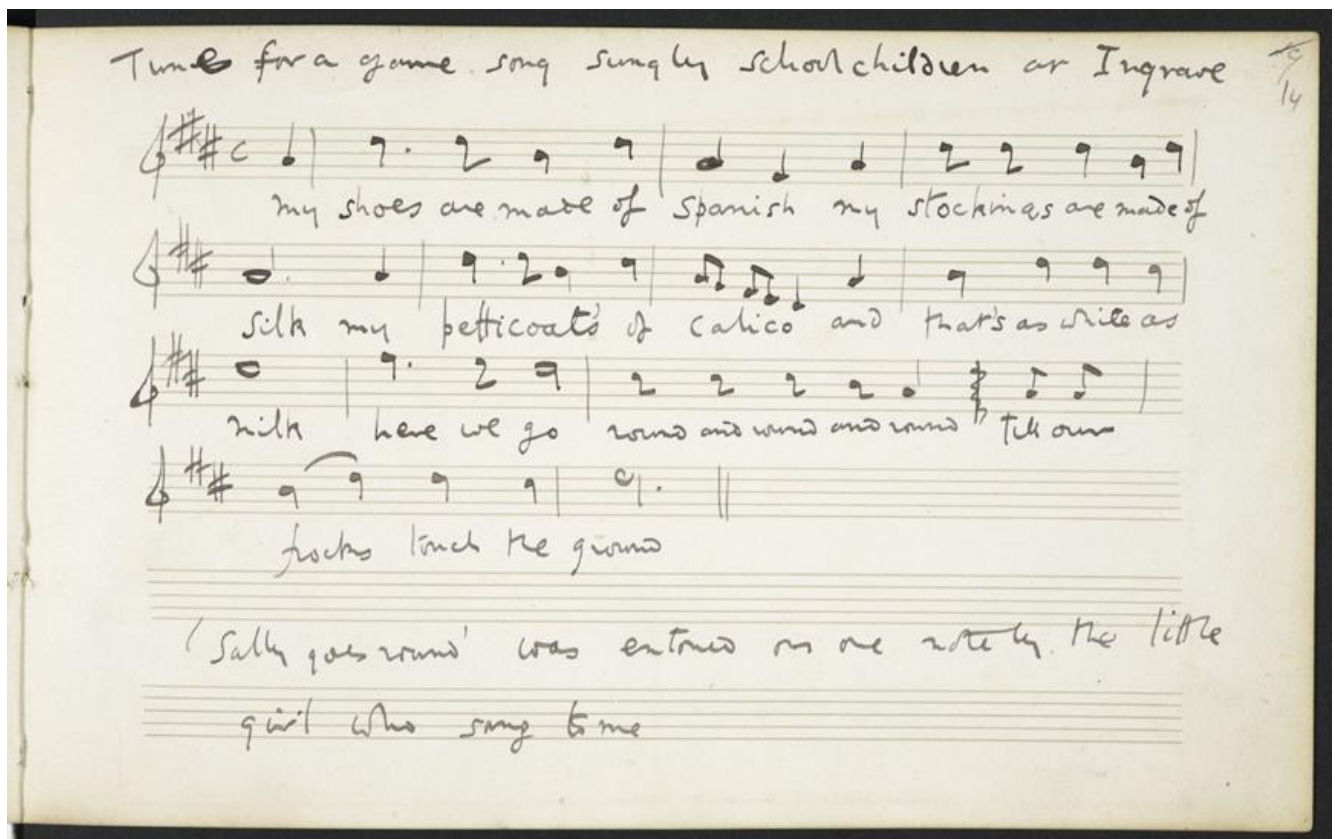 Tune for a game song sung by schoolchildren at Ingrave
14
my shoes are made of spanish my stockings are made of
silk my petticoat's of calico and that's as white as
milk here we go round and round and round till our
frocks touch the ground
'Sally goes round' was entoned on one note by the little
girl who sang to me